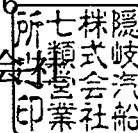 隠岐汽船
株式会社
七類営業
所之印